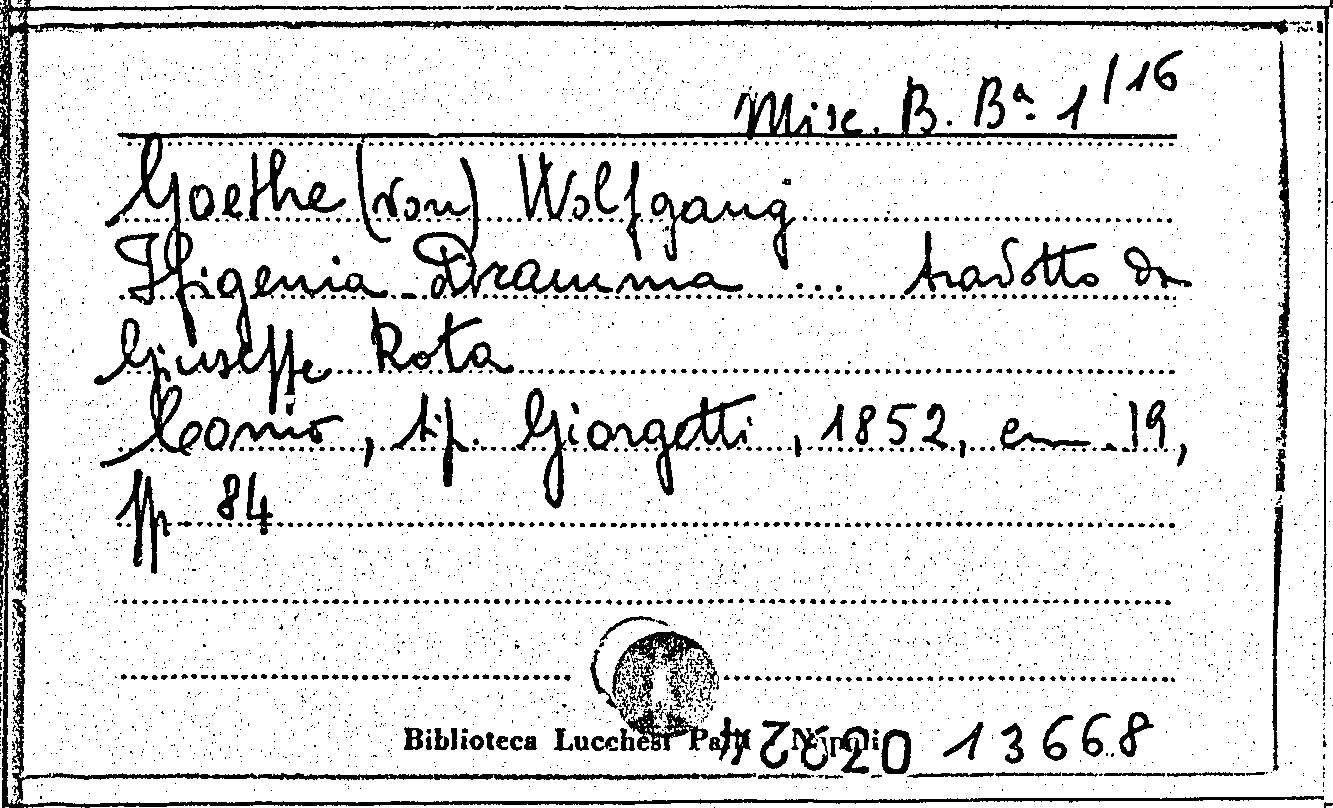 Misc. B. Bª. 1/16
Goethe (von) Wolfgang
Ifigenia - Dramma ... tradotto da
Giuseppe Rota
Como, tip. Giorgetti, 1852, cm. 19,
pp. 84
Biblioteca Lucchesi Palli Napoli 13668